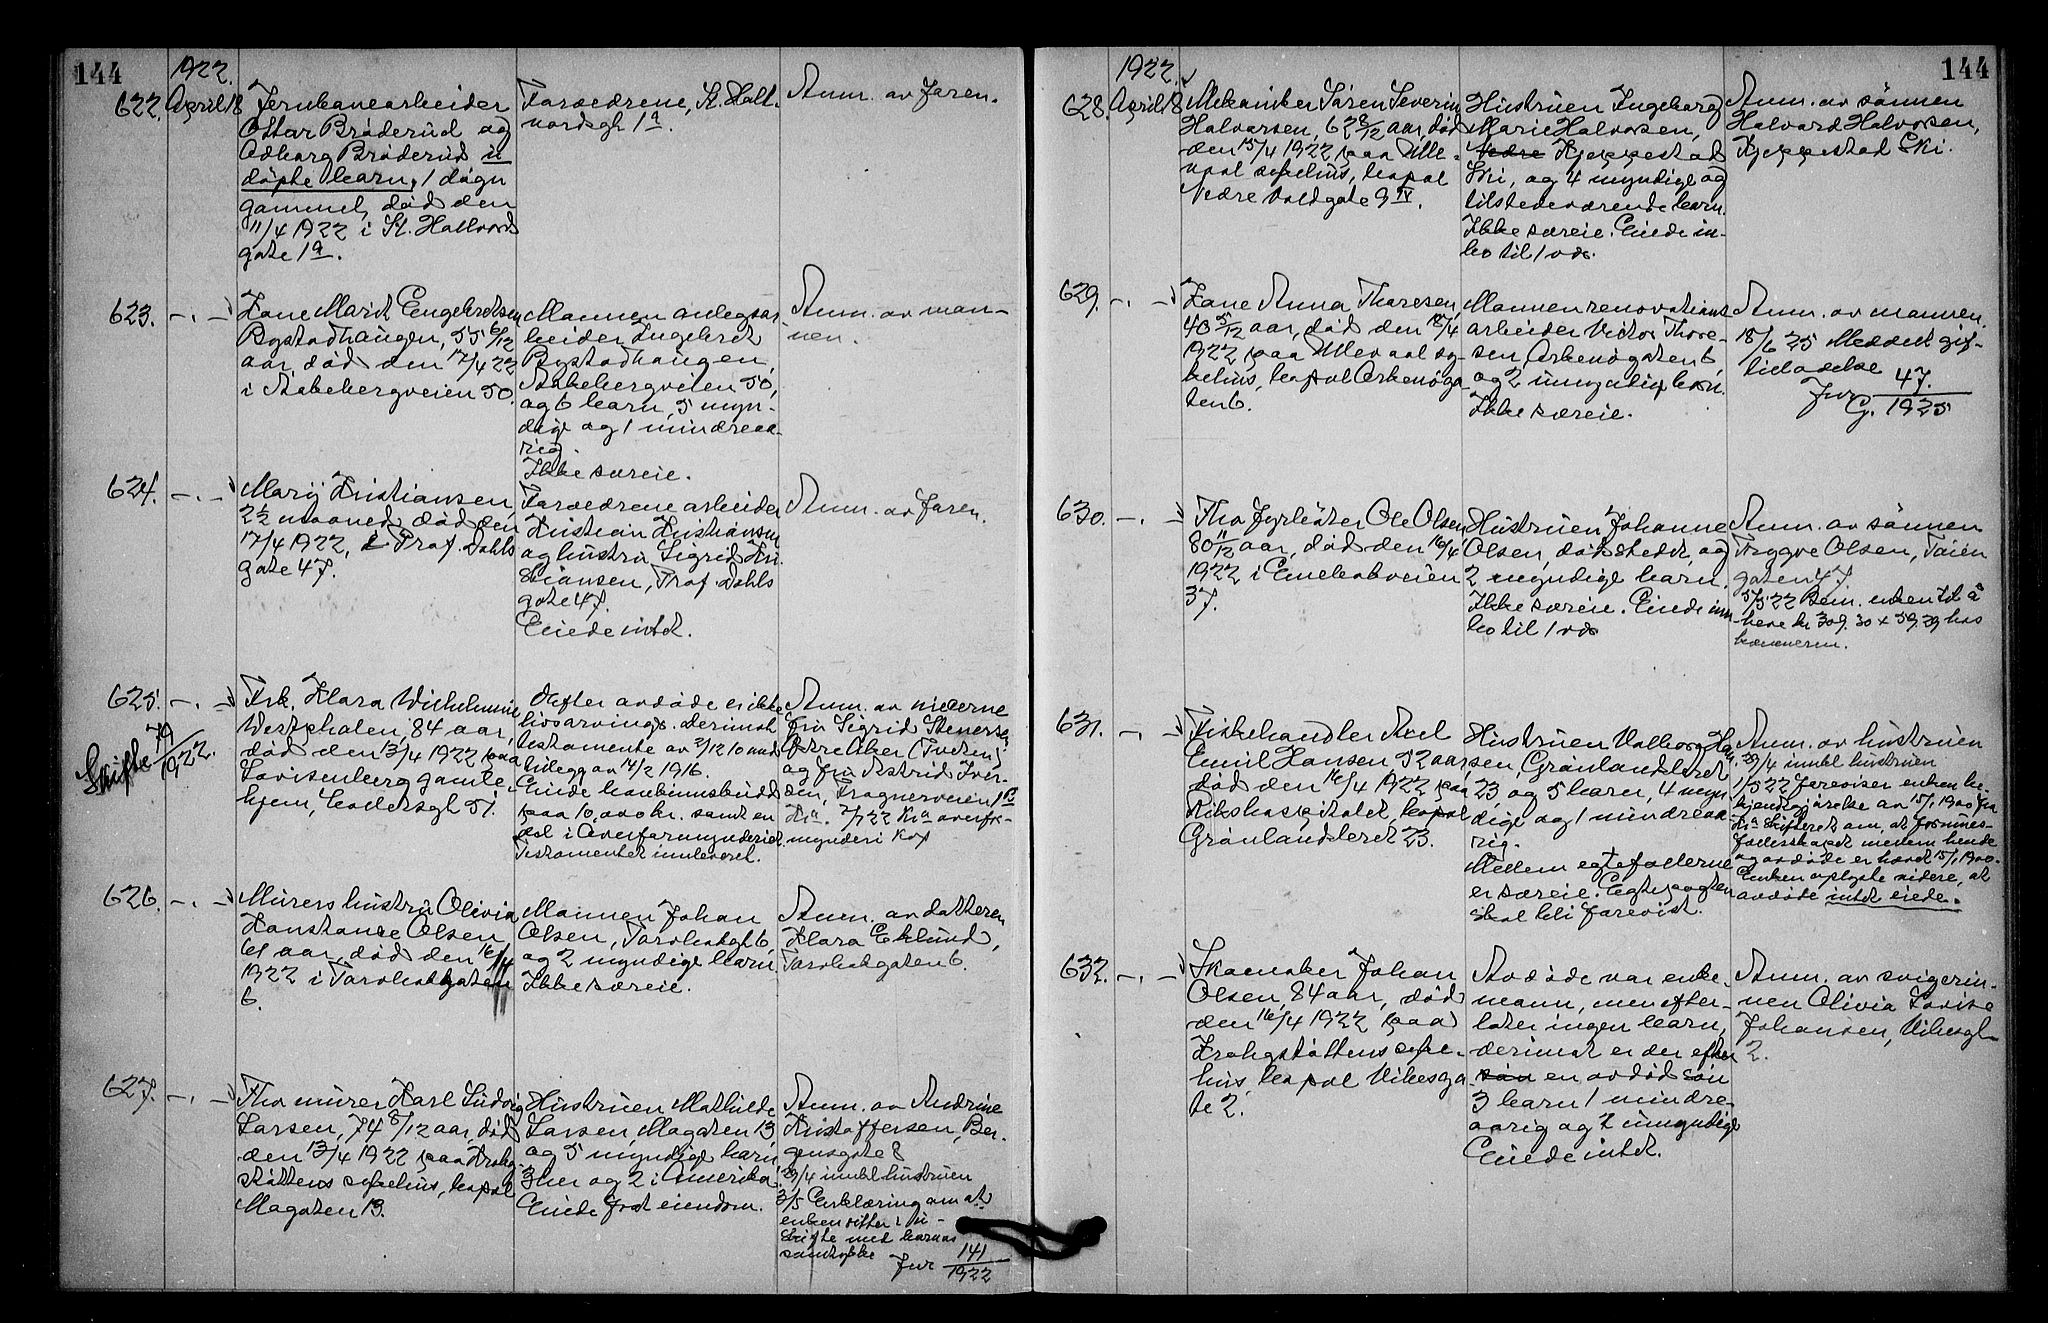 144
1922.
622. April 18
Jernbanearbeider
Ottar Bröderud og
Bröderud u
döpte barn, 1 dögn
gammel, död den
11/4 1922 i St. Hallvards
gate 1a.
Forældrene, St. Hall-
vardsgt 1a.
Anm. av faren.
623. -.-
Kone Marit Engebretsen
Bystadhaugen, 55 6/12
aar, död den 17/4 22
i Stabebergveien 50.
Mannen anlegsar
beider Ingebret
Bystadhaugen,
50,
og 6 barn, 5 myn-
dige og 1 mindreaa-
rig.
Ikke særeie.
Anm. av man-
nen.
624. -.-
Mary Kristiansen
2½ maaned, död den
17/4 1922, i Prof. Dahls
gate 47.
Forældrene arbeider
Kristian Kristiansen
og hustru Sigrid Kri
stiansen, Prof. Dahls
gate 47.
Eiede intet.
Anm. av faren.
625. -.-
Skifte 79/1922.
Frk. Klara Wilhelmine
Westphalen, 84 aar,
död den 13/4 1922 paa
Lovisenberg gamle-
hjem, 51.
Efter avdöde er ikke
livsarvinger. Derimot
testamente av 2/12 10 med
tillegg av 14/2 1916.
Eiede
paa 10,000 kr. samt en
del i Overformynderiet
Testamentet innleveret.
Anm. av niecerne
fru Sigrid Stenersen
Östre Aker (Tveten)
og fru Astrid Iver-
sen, Frognerveien
Kra. 7/7 22 Kra overfor-
mynderi
626. -.-
Murers hustru Olivia
Konstance Olsen
61 aar, död den 16/4
1922 i Torvbakgaten
6.
Mannen Johan
Olsen, Torvbakgt 6,
og 2 myndige barn.
Ikke særeie.
Anm. av datteren
Klara Eklund,
Torvbakgaten 6.
627. -.-
Fhv murer Karl Ludvig
Larsen, 74 8/12 aar, död
den 13/4 1922 paa Krohg-
stöttens sykehus, bopæl
Mogaten 13.
Hustruen Mathilde
Larsen, Mogaten 13
og 5 myndige barn,
3 her og 2 i Amerika.
Eiede fast eiendom.
Anm. av Andrine
Kristoffersen, Ber-
gensgate 8
29/4 innkl hustruen
3/5 Erklæring om at
enken sitter i u-
skifte med barnas
samtykke
Jur 141/1922
144
1922.
628. April 18
Mekaniker Sören Severin
Halvorsen, 62 8/12 aar, död
den 15/4 1922 paa Ulle-
vaal sykehus, bopæl
Nedre Voldgate 9 IV.
Hustruen Ingeborg
Marie Halvorsen,
Nedre Kjeppestad
Ski, og 4 myndige og
tilstedeværende barn.
Ikke særeie. Eiede in-
bo til 1 vds.
Anm. av sönnen
Halvard Halvorsen,
Kjeppestad Ski.
629. -.-
Kone Anna Thoresen,
40 5/12 aar, död den 15/4
1922 paa Ullevaal sy-
kehus, bopæl Arbeiöga-
ten 6.
Mannen renovations
arbeider Victor Thore-
sen, 6
og 2 umyndige barn.
Ikke særeie.
Anm. av mannen.
18/6 25 Meddelt gif-
tiladelse
Jur 47./G. 1925
630. -.-
Fhv fyrböter Ole Olsen
80 11/12 aar, död den 16/4
1922 i Enebakveien
37.
Hustruen Johanne
Olsen, dödstedet, og
2 myndige barn.
Ikke særeie. Eiede inn
bo til 1 vds
Anm. av sönnen
Trygve Olsen, Töien
gaten 47.
5/5 22 Bem. enken til å
heve kr 309.30 + 59.79 hos
kæmneren.
631. -.-
Fiskehandler Axel
Emil Hansen 52 aar,
död den 16/4 1922 paa
Rikshospitalet, bopæl
Grönlandsleret 23.
Hustruen Valborg Han-
sen, Grönlandsleret
23 og 5 barn, 4 myn
dige og 1 mindreaa-
rig.
Mellem egtefællerne
er særeie. Egtepagten
skal bli forevist.
Anm. av hustruen
29/4 innkl hustruen
1/5 22 foreviser enken be-
kjendtgjörelse av 15/1 1900 fra
Kra Skifteret om, at formues-
fællesskapet mellem hende
og avdöde er hævet 15/1 1900.
Enken oplyste videre, at
avdöde intet eiede.
632. -.-
Skomaker Johan
Olsen, 84 aar, död
den 16/4 1922 paa
Krohgstöttens syke-
hus bopæl Vibesga
te 2.
Avdöde var enke-
mann, men efter-
later ingen barn,
derimot er der efter
sön en avdöd sön
3 barn 1 mindre-
aarig og 2 umyndige
Eiede intet.
Anm. av svigerin-
nen Olivia Lovise
Johansen, Vibesgt
2.